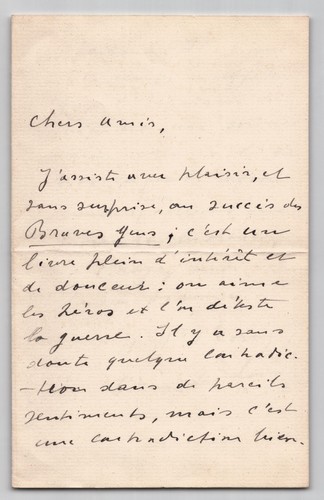 Chers amis,
J'assiste avec plaisir, et
sans surprise, au succès des
Braves Gens ; c'est un
livre plein d'intérêt et
de douceur : on aime
les héros et l'on déteste
la guerre. Il y a sans
doute quelque contradic-
-tion dans de pareils
sentiments, mais c'est
une contradiction bien